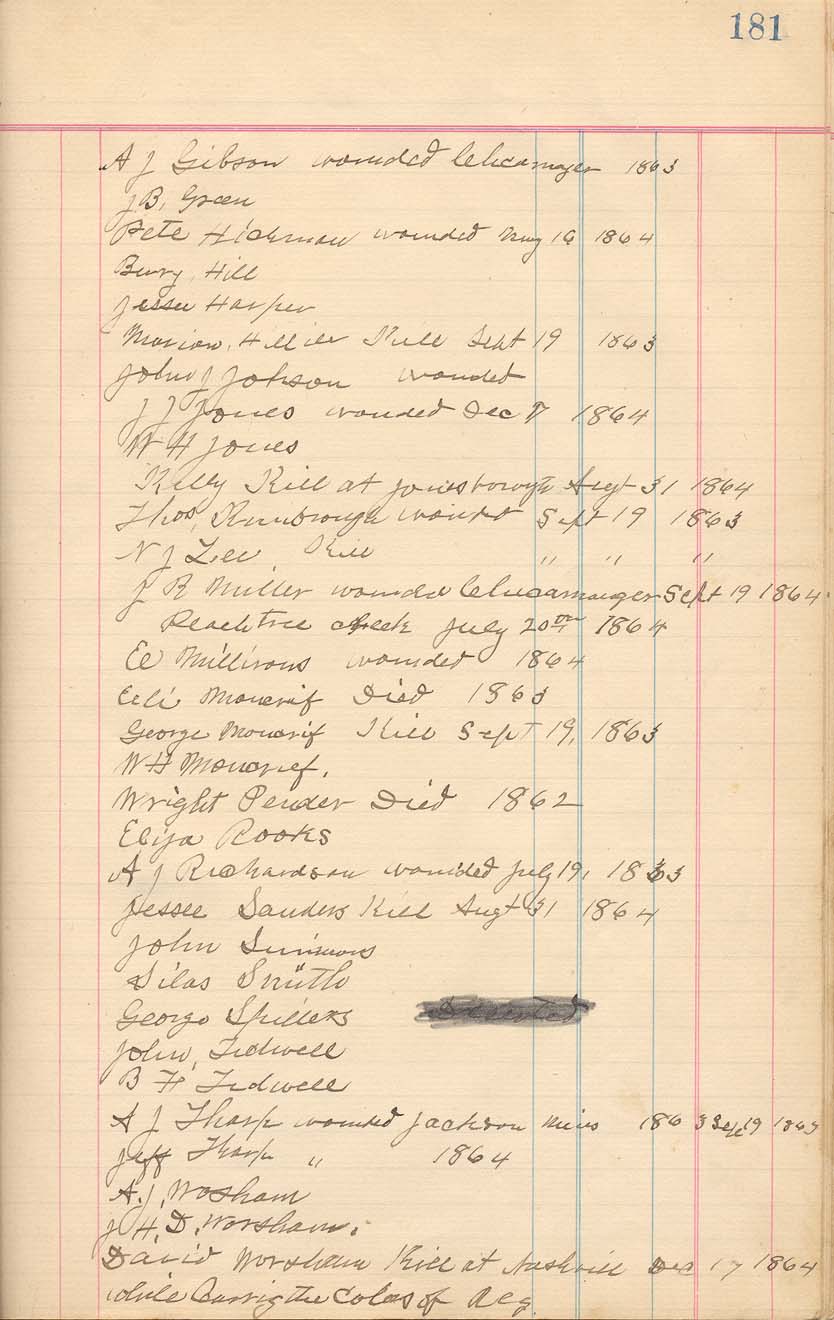 181
A J Gibson wounded Chicamoger 1863
J B. Green
Pete Hickman wounded May 16 1864
Berry Hill
Jesse Harper
Marion Hillier Kill Sept 19 1863
John J Johson woundet
J J Jones wounded Dec 7 1864
W H Jones
Kelly Kill at jonesborough Augt 31 1864
Thos, Kimbrough Sept 19 1863
N J Lee Kill " " "
J R Miller wounded Chicamauger Sept 19 1864
Peachtree July 20 1864
Millirons wounded 1864
Eli Moncrif Died 1863
George Moncrif Kill Sept 19, 1863
W H Moncrief.
Wright Pender Died 1862
Elija Rooks
A J Richardson wounded July 19, 1863
Jessee Sanders Kill Augt 31 1864
John Simmons
Silas Smith
George Spillers Deserted
John, Tidwell
B F Tidwell
A J Tharp wounded Jackson Miss 1863 Sept 19 1863
Jeff Tharp " 1864
A. J. Worsham
J. H. D. Worsham.
David Worsham Kill at Nashvill Dec 17 1864
while Carrig the Colas of Reg